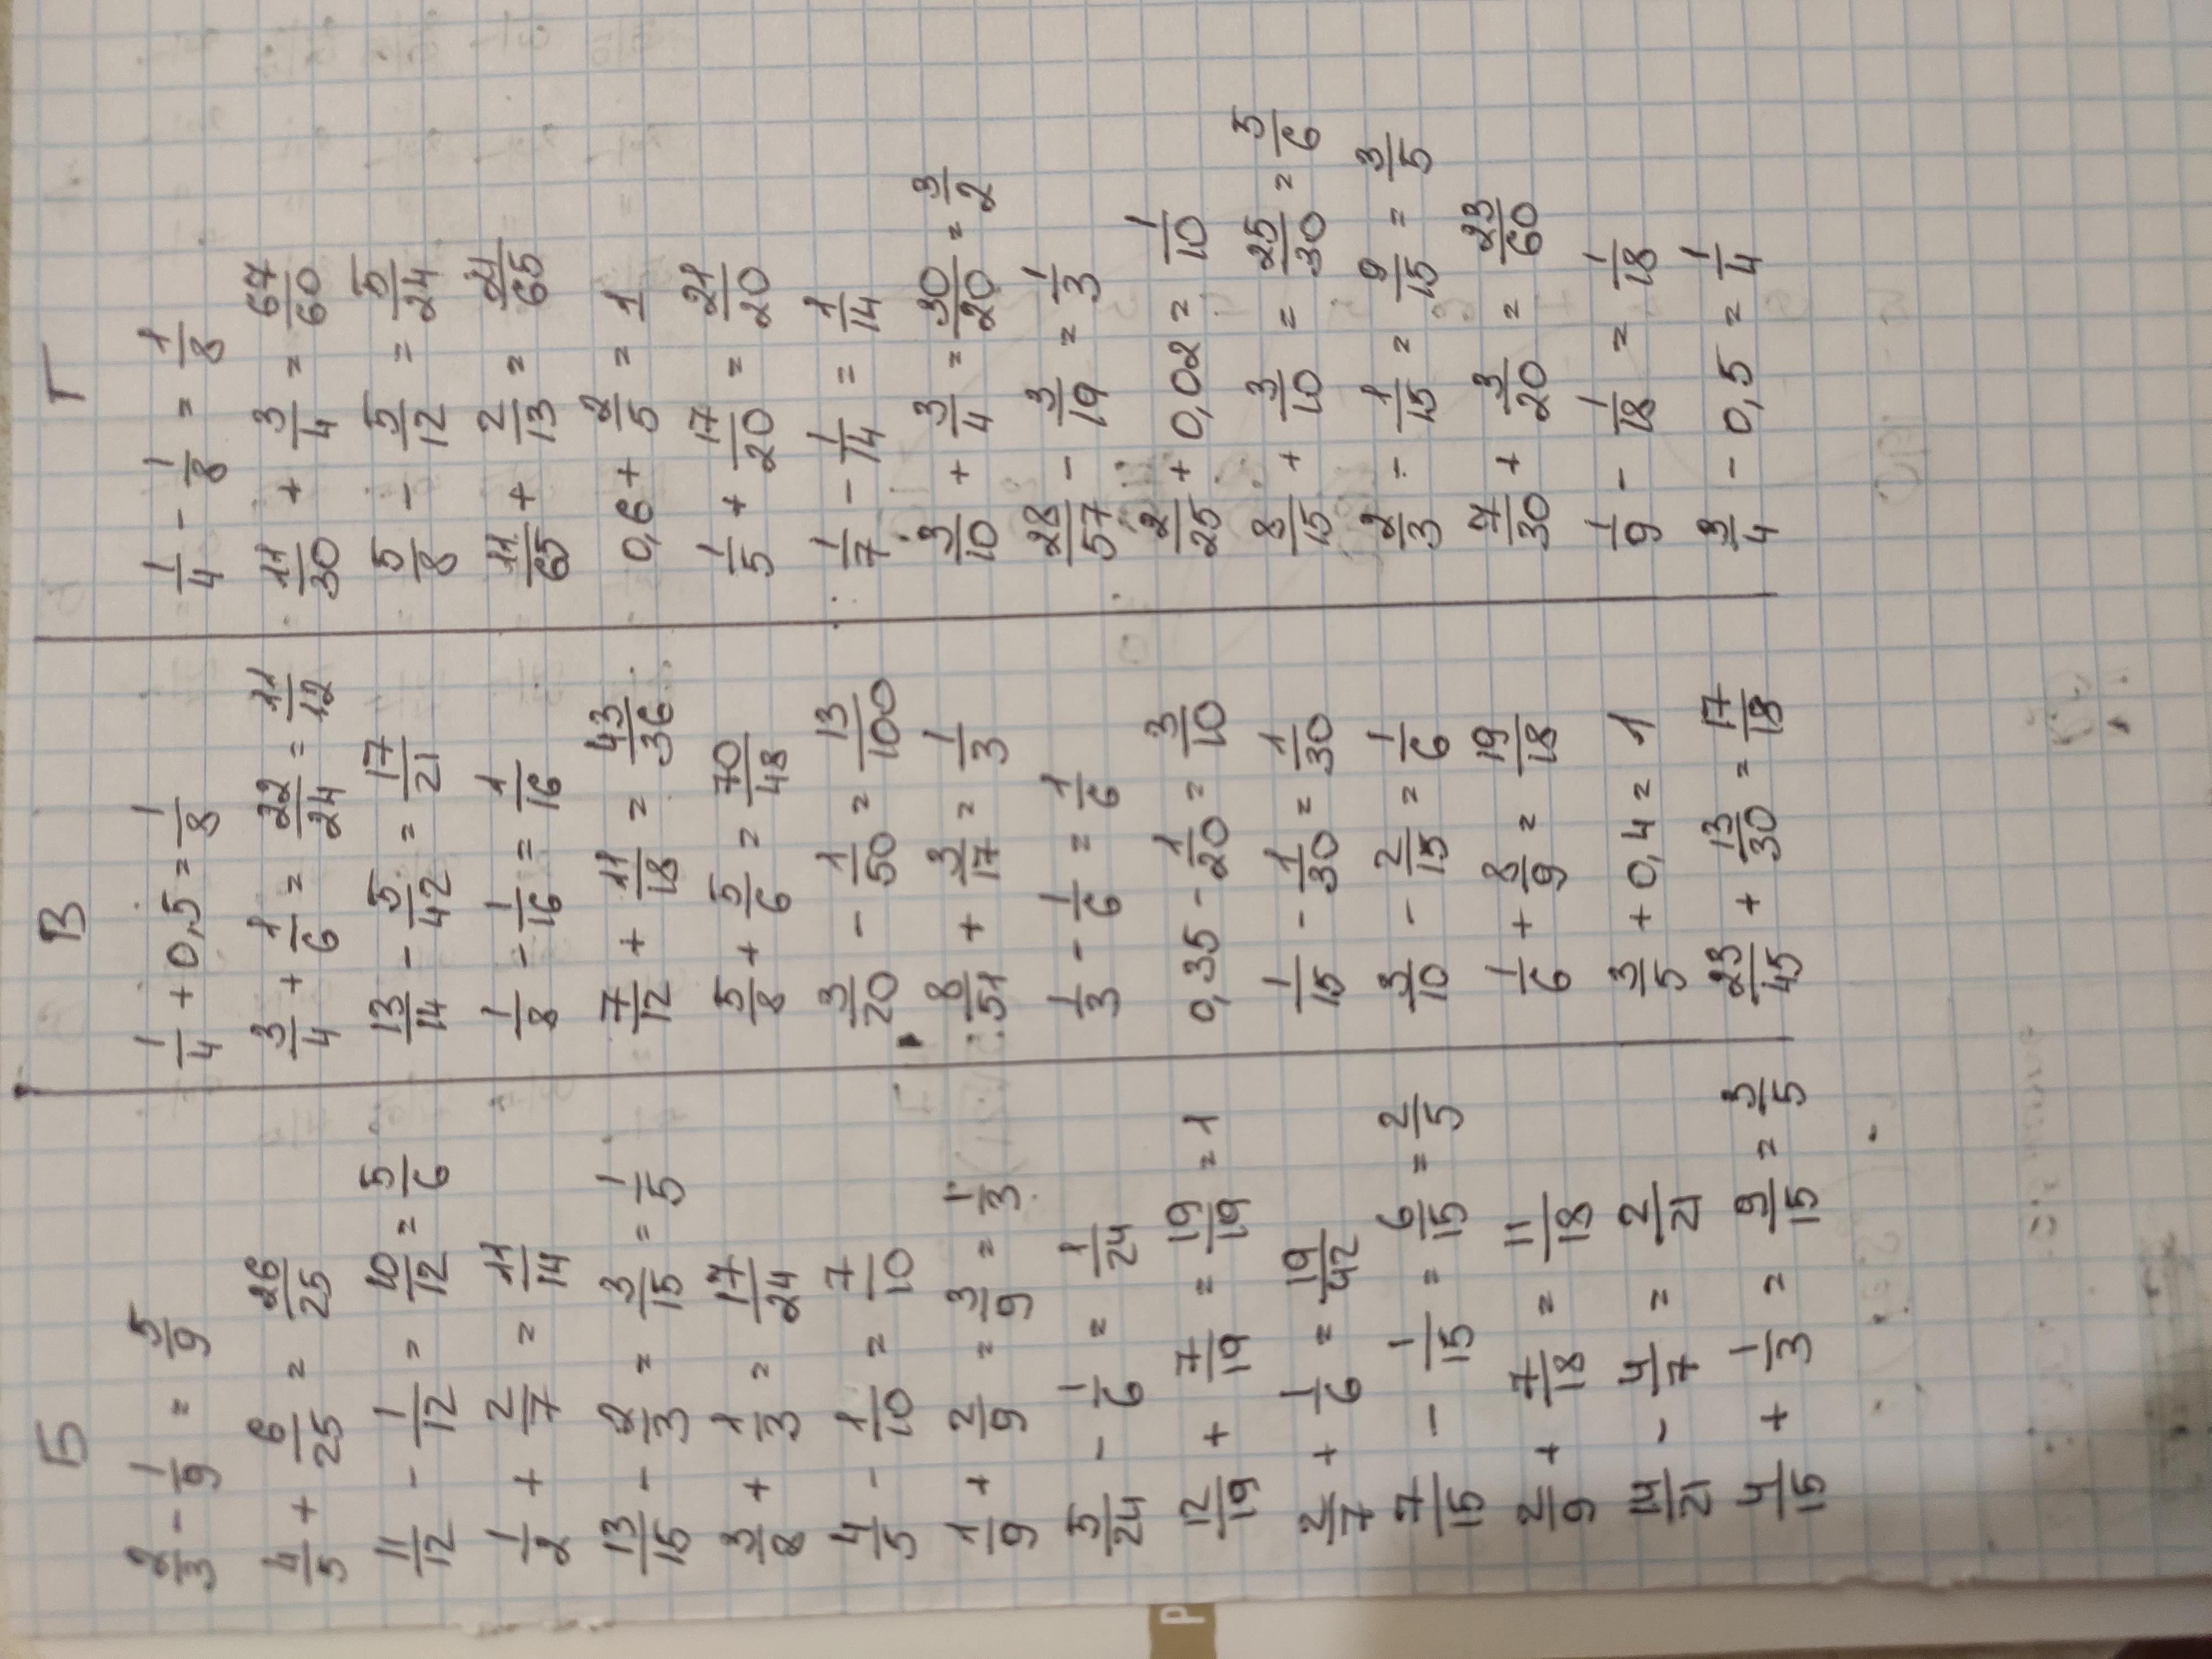 Б В Г
2/3 - 1/9 = 5/9
4/5 + 6/25 = 26/25
11/12 - 1/12 = 10/12 = 5/6
1/2 + 2/7 = 11/14
13/15 - 2/3 = 3/15 = 1/5
3/8 + 1/3 = 17/24
4/5 - 1/10 = 7/10
1/9 + 2/9 = 3/9 = 1/3
5/24 - 1/6 = 1/24
12/19 + 7/19 = 19/19 = 1
2/7 + 1/6 = 19/42
7/15 - 1/15 = 6/15 = 2/5
2/9 + 7/18 = 11/18
14/21 - 4/7 = 2/21
4/15 + 1/3 = 9/15 = 3/5
1/4 + 0,5 = 1/8
3/4 + 1/6 = 22/24 = 11/12
13/14 - 5/42 = 17/21
1/8 - 1/16 = 1/16
7/12 + 11/18 = 43/36
5/8 + 5/6 = 70/48
3/20 - 1/50 = 13/100
8/51 + 3/17 = 1/3
1/3 - 1/6 = 1/6
0,35 - 1/20 = 3/10
1/15 - 1/30 = 1/30
3/10 - 2/15 = 1/6
1/6 + 8/9 = 19/18
3/5 + 0,4 = 1
23/45 + 13/30 = 17/18
1/4 - 1/8 = 1/8
11/30 + 3/4 = 67/60
5/8 - 5/12 = 5/24
11/65 + 2/13 = 21/65
0,6 + 2/5 = 1
1/5 + 17/20 = 21/20
1/7 - 1/14 = 1/14
3/10 + 3/4 = 30/20 = 3/2
28/57 - 3/19 = 1/3
2/25 + 0,02 = 1/10
8/15 + 3/10 = 25/30 = 5/6
2/3 - 1/15 = 9/15 = 3/5
7/30 + 3/20 = 23/60
1/9 - 1/18 = 1/18
3/4 - 0,5 = 1/4
P